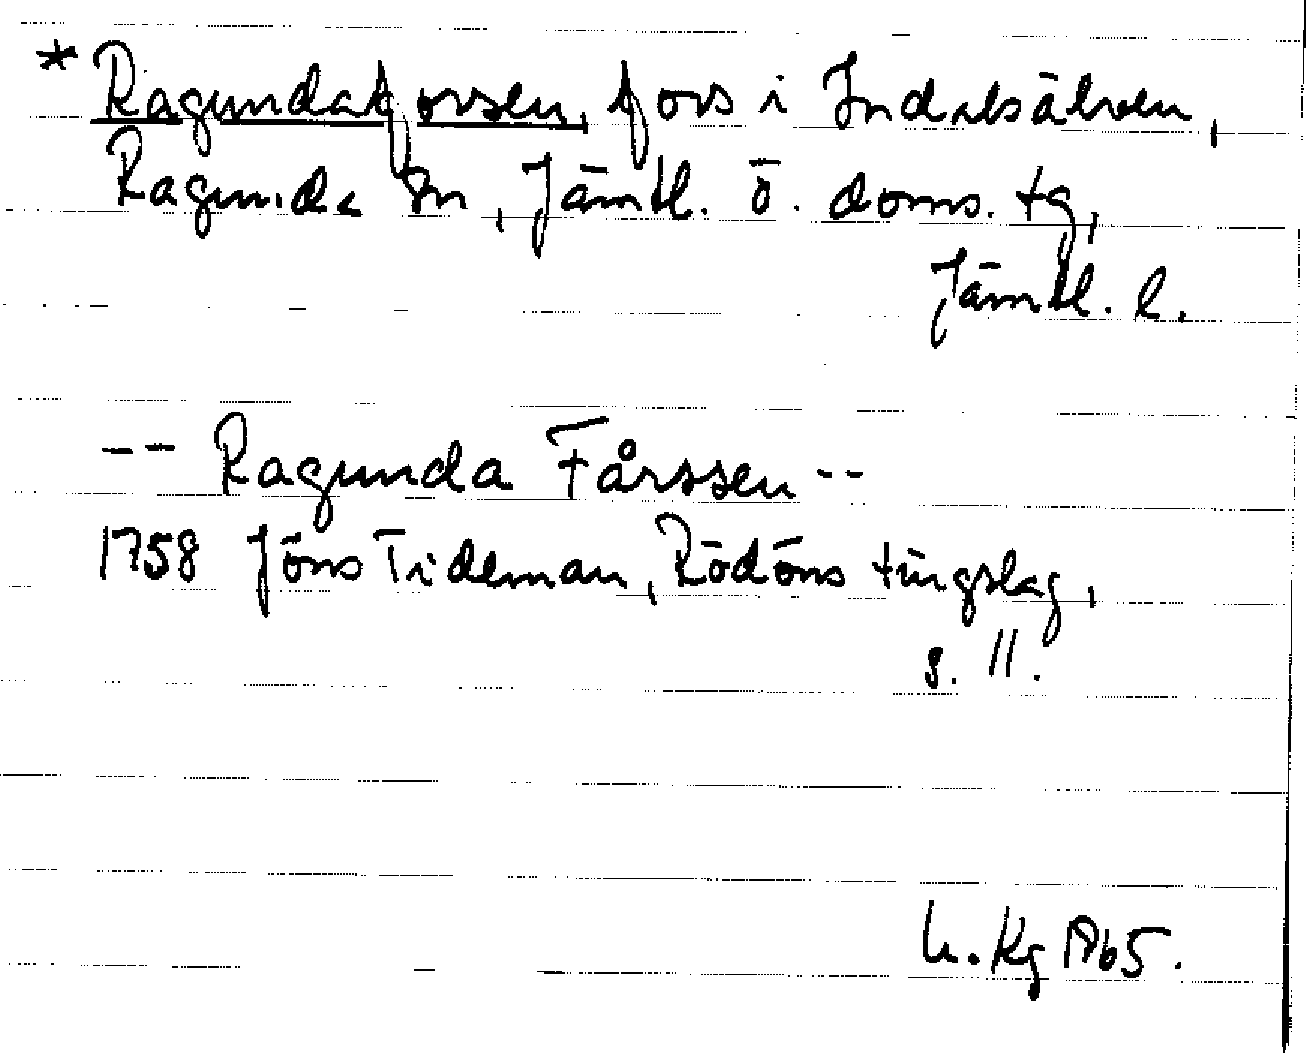 * Ragundaforsen, fors i Indalsälven,
Ragunda sn, Jämtl. ö. doms. tg,
Jämtl. l.
-- Ragunda Fårssen --
1758 Jöns Tideman, Rödöns tingslag,
s. 11.
Kg 1965.